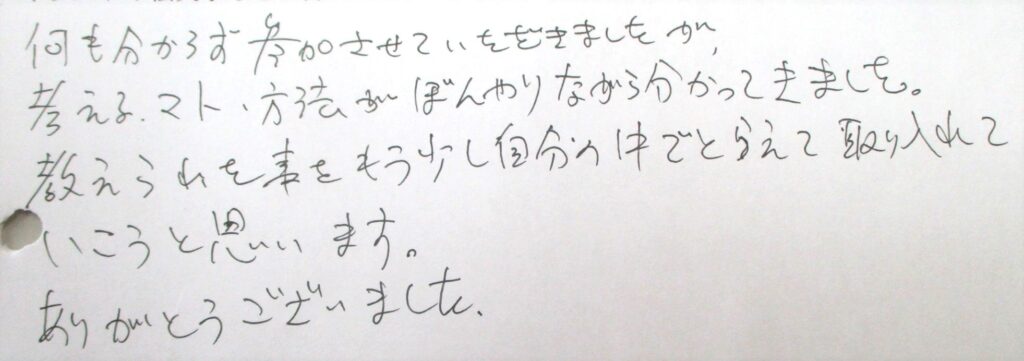 何も分からず参加させていただきましたが、
考える、マト、方法がぼんやりながら分かってきました。
教えられた事をもう少し自分の中でとらえて取り入れて
いこうと思います。
ありがとうございました。